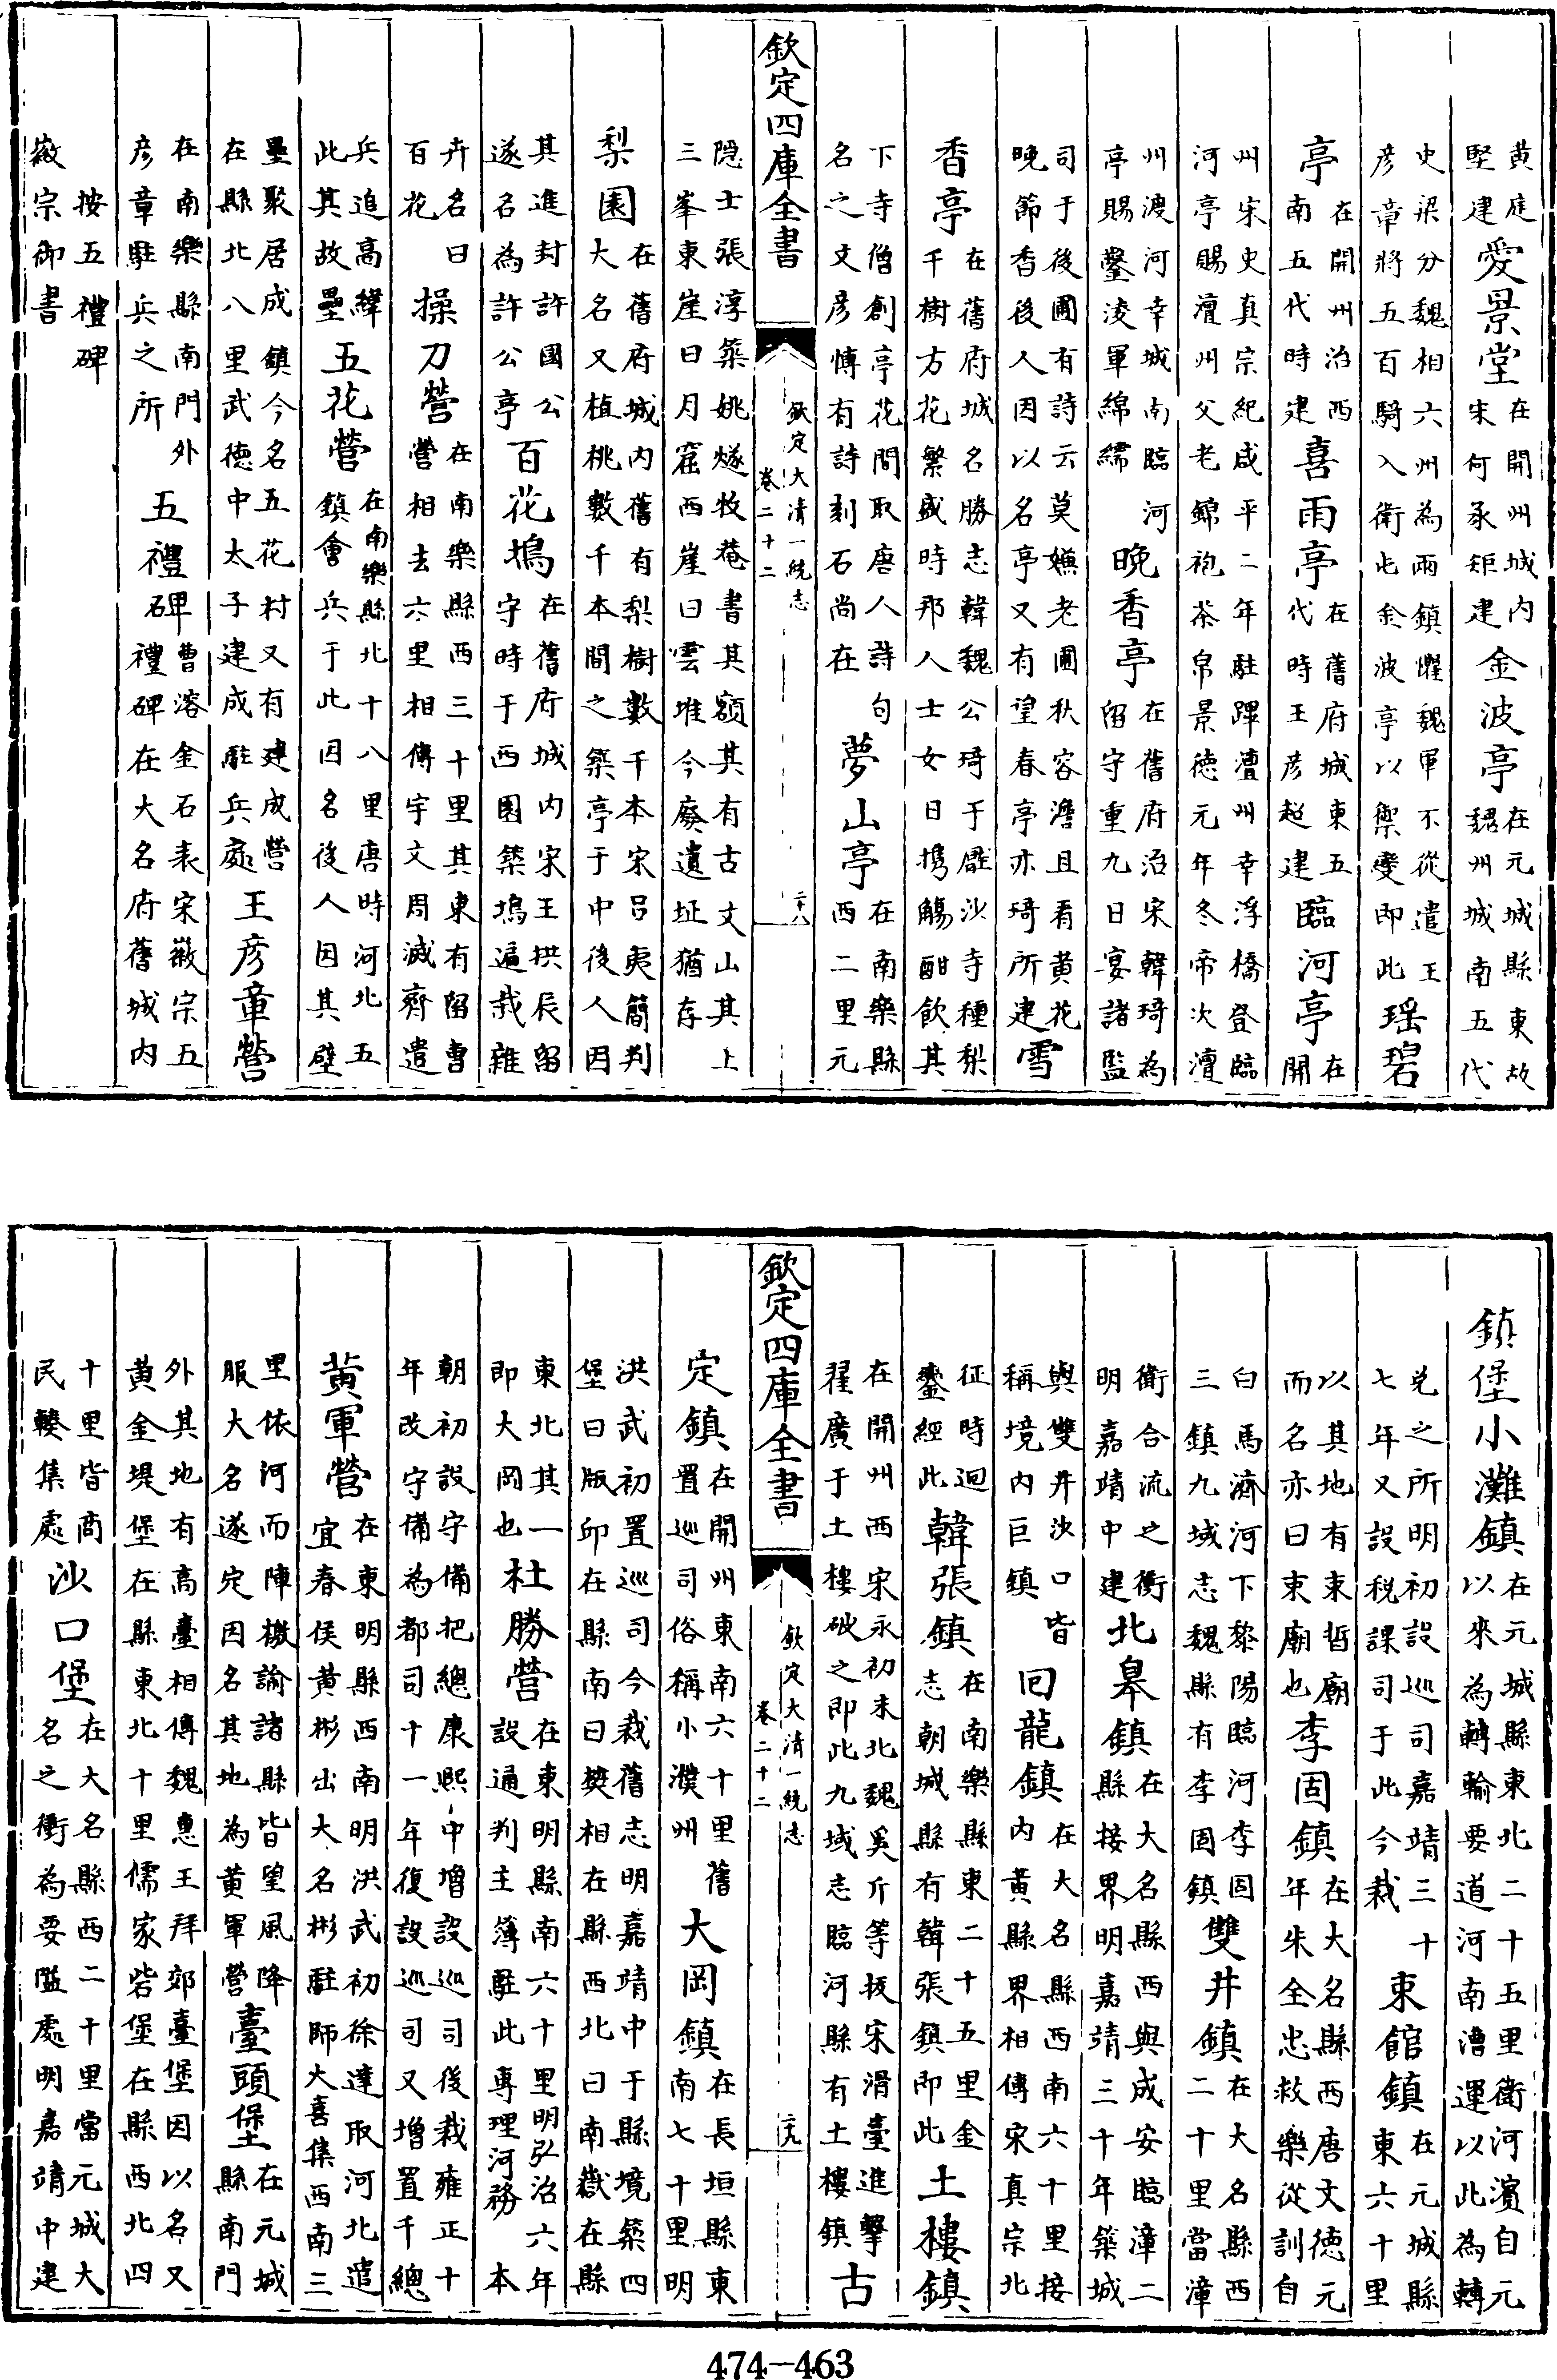 黄庭堅建愛景堂在開州城内宋何承矩建金波亭在元城縣東故魏州城南五代
史梁分魏相六州為兩鎮懼魏軍不從遣王彦章將五百騎入衛屯金波亭以禦變即此瑶碧
亭在開州治西南五代時建喜雨亭在舊府城東五代時王彦超建臨河亭在開
州宋史真宗紀咸平二年駐蹕澶州幸浮橋登臨河亭賜澶州父老錦袍茶帛景徳元年冬帝次澶
州渡河幸城南臨河亭賜鑿凌軍綿繻晩香亭在舊府治宋韓琦為留守重九日宴諸監
司于後圃有詩云莫嫌老圃秋容澹且看黄花晚節香後人因以名亭又有望春亭亦琦所建雪
香亭在舊府城名勝志韓魏公琦于壓沙寺種梨千樹方花繁盛時邢人士女日擕觴酣飲其
下寺僧創亭花間取唐人詩句名之文彦慱有詩刻石尚在夢山亭在南樂縣西二里元
欽定四庫全書 欽定大清一統志 卷二十二 二十八
隠士張淳築姚燧牧菴書其額其有古文山其上三峯東崖曰月窟西崖曰雲堆今廢遺址猶存
梨園在舊府城内舊有梨樹數千本宋吕夷簡判大名又植桃數千本間之築亭于中後人因
其進封許國公遂名為許公亭百花塢在舊府城内宋王拱辰留守時于西園築塢遍栽雜
卉名曰百花操刀營在南樂縣西三十里其東有留曹營相去六里相傳宇文周滅齊遣
兵追高緯此其故壘五花營在南樂縣北十八里唐時河北五鎮會兵于此因名後人因其壁
壘聚居成鎮今名五花村又有建成營在縣北八里武徳中太子建成駐兵處王彦章營
在南樂縣南門外彦章駐兵之所五禮碑曹溶金石表宋徽宗五禮碑在大名府舊城内
按五禮碑徽宗御書
鎮堡小灘鎮在元城縣東北二十五里衛河濱自元以來為轉輸要道河南漕運以此為轉
兑之所明初設巡司嘉靖三十七年又設税課司于此今裁東館鎮在元城縣東六十里
以其地有東晢廟而名亦曰束廟也李固鎮在大名縣西唐文徳元年朱全忠救樂從訓自
白馬濟河下黎陽臨河李固三鎮九域志魏縣有李固鎮雙井鎮在大名縣西二十里當漳
衛合流之衝明嘉靖中建北臯鎮在大名縣西與成安臨漳二縣接界明嘉靖三十年築城
與雙井決口皆稱境内巨鎮回龍鎮在大名縣西南六十里接内黃縣界相傳宋真宗北
征時迴鑾經此韓張鎮在南樂縣東二十五里金志朝城縣有韓張鎮即此土樓鎮
在開州西宋永初末北魏奚斤等扳宋滑臺進擊翟廣于土樓破之即此九域志臨河縣有土樓鎮古
欽定四庫全書 欽定大清一統志 卷二十二 二十九
定鎮在開州東南六十里舊置巡司俗稱小濮州大岡鎮在長垣縣東南七十里明
洪武初置巡司今裁舊志明嘉靖中于縣境築四堡曰版邱在縣南曰樊相在縣西北曰南嶽在縣
東北其一即大岡也杜勝營在東明縣南六十里明弘治六年設通判主簿駐此專理河務本
朝初設守備把總康熙中增設巡司後裁雍正十年改守備為都司十一年復設巡司又增置千總
黃軍營在東明縣西南明洪武初徐達取河北遣宜春侯黄彬出大名彬駐師大喜集西南三
里依河而陣檄諭諸縣皆望風降服大名遂定因名其地為黄軍營臺頭堡在元城縣南門
外其地有高臺相傳魏惠王拜郊臺堡因以名又黄金堤堡在縣東北十里儒家砦堡在縣西北四
十里皆商民輳集處沙口堡在大名縣西二十里當元城大名之衝為要隘處明嘉靖中建
474-463